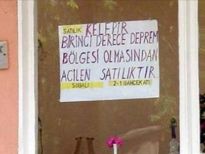 SATILIK KELEPİR
BİRİNCİ DERECE DEPREM
BÖLGESİ OLMASINDAN
ACİLEN SATILIKTIR.
SOBALI 2-1 BAHÇEKATI